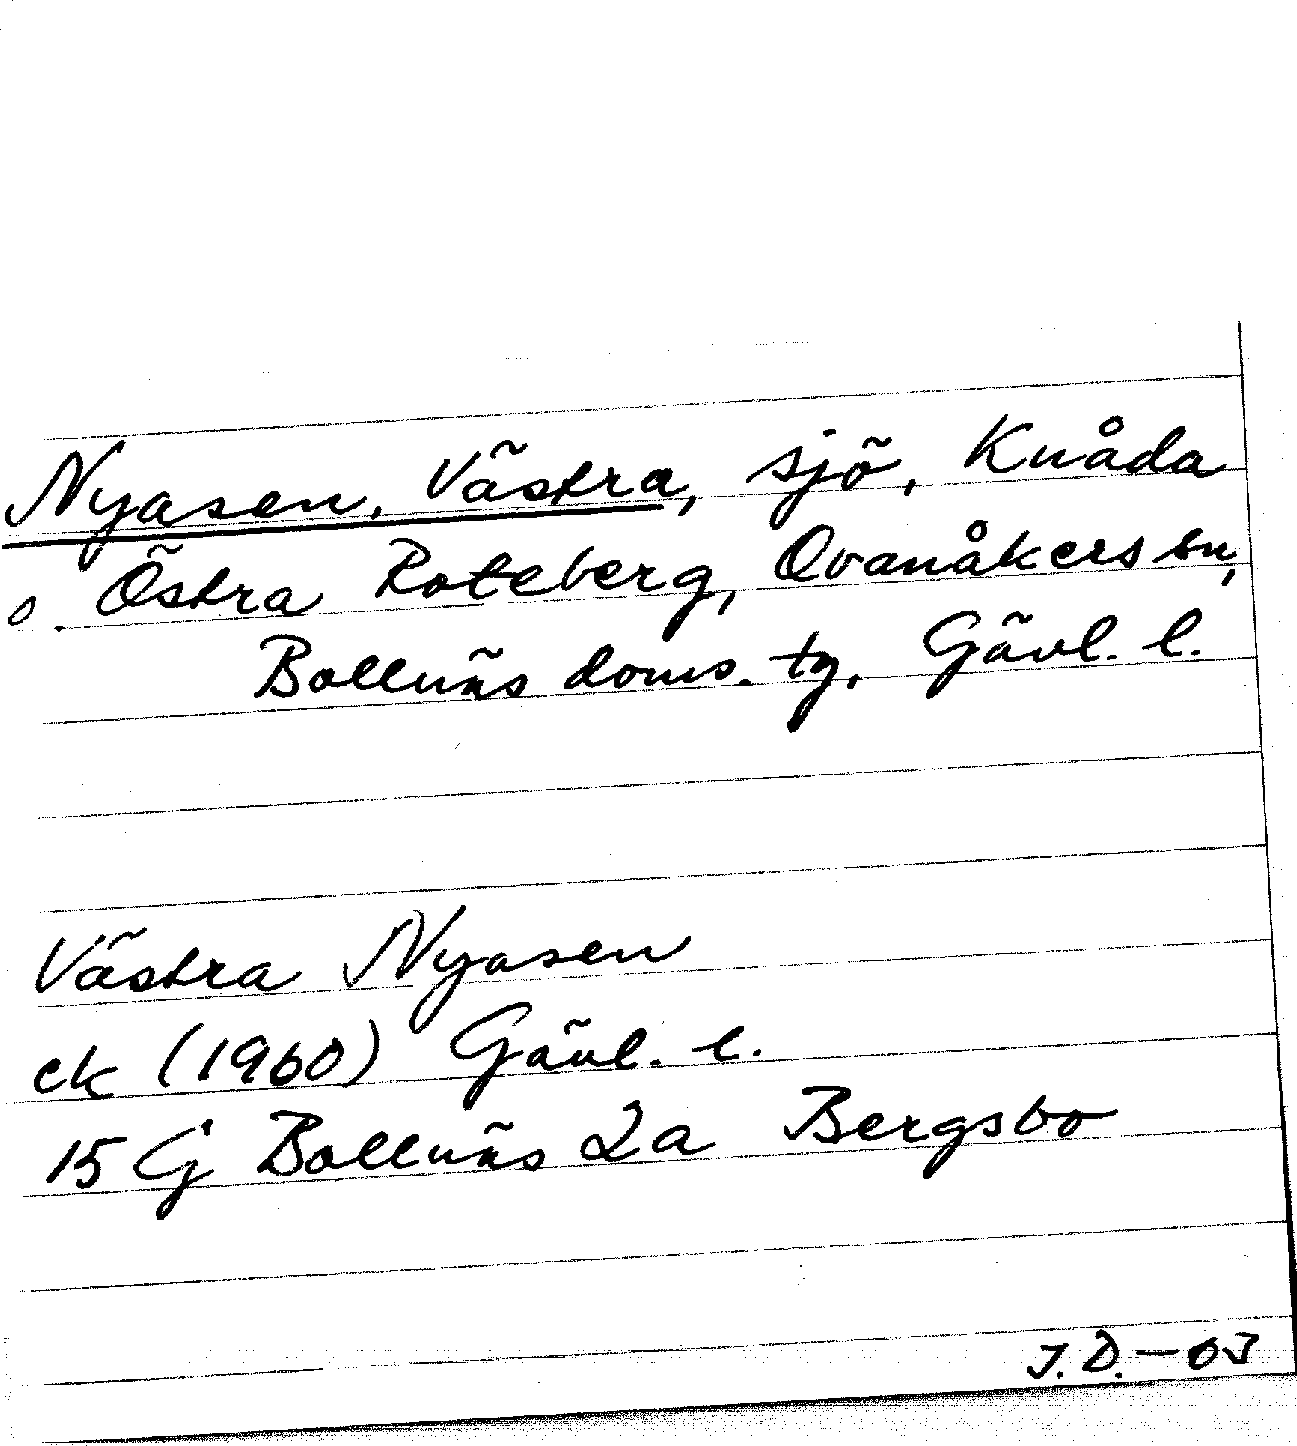 Nyasen, Västra, sjö, Knåda
o. Östra Roteberg, Ovanåkers sn,
Bollnäs doms. tg, Gävl. l.
Västra Nyasen
ek (1960) Gävl. l.
15 G Bollnäs 2a Bergsbo